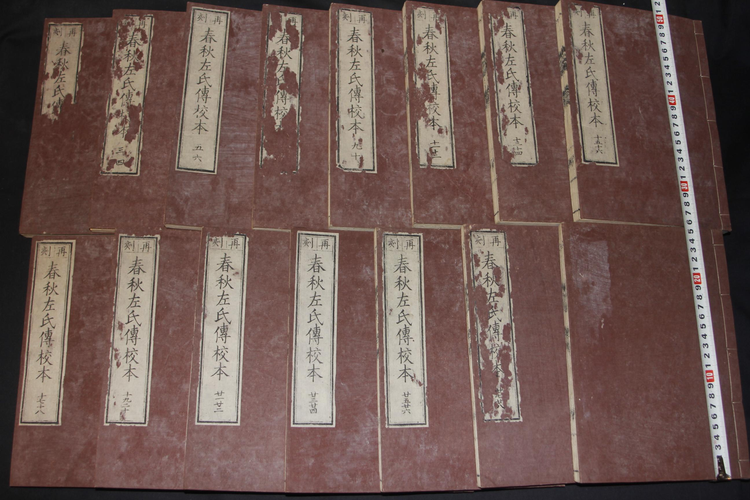 再刻
春秋左氏傳
再刻
春秋左氏傳校本
三四
再刻
春秋左氏傳校本
五六
再刻
春秋左氏傳校
再刻
春秋左氏傳校本
九十
再刻
春秋左氏傳校本
再刻
春秋左氏傳校本
再刻
春秋左氏傳校本
十五十六
再刻
春秋左氏傳校本
十七十八
再刻
春秋左氏傳校本
十九二十
再刻
春秋左氏傳校本
廿一廿二
再刻
春秋左氏傳校本
廿三廿四
再刻
春秋左氏傳校本
廿五廿六
再刻
春秋左氏傳校本